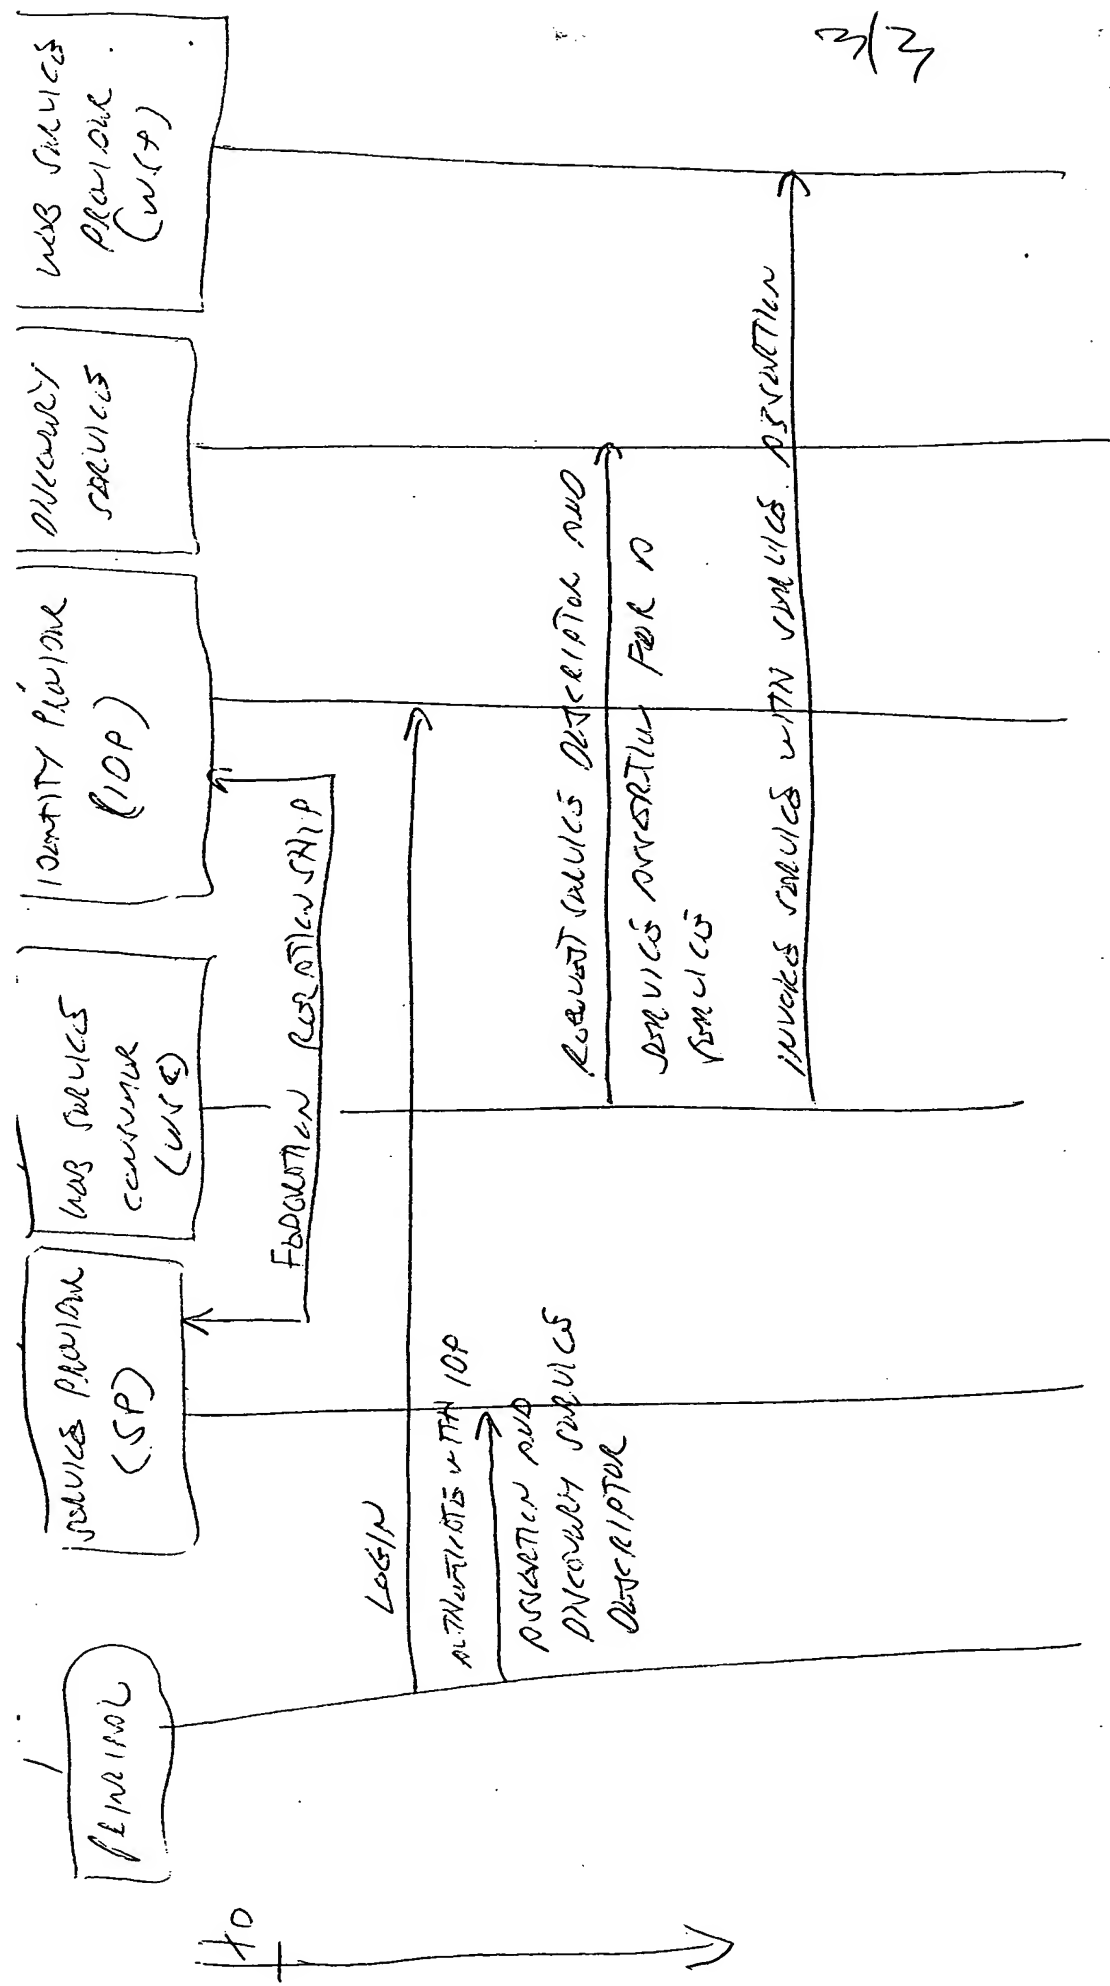 3/3
PRINCIPAL
SERVICE PROVIDER
(SP)
WEB SERVICE
CONSUMER
(WSC)
IDENTITY PROVIDER
(IDP)
DISCOVERY
SERVICE
WEB SERVICE
PROVIDER
(WSP)
t0
FEDERATION RELATIONSHIP
LOGIN
AUTHENTICATE WITH IDP
ASSERTION AND
DISCOVERY SERVICE
DESCRIPTOR
REQUEST SERVICE DESCRIPTOR AND
SERVICE ASSERTION FOR A
SERVICE
INVOKE SERVICE WITH SERVICE ASSERTION